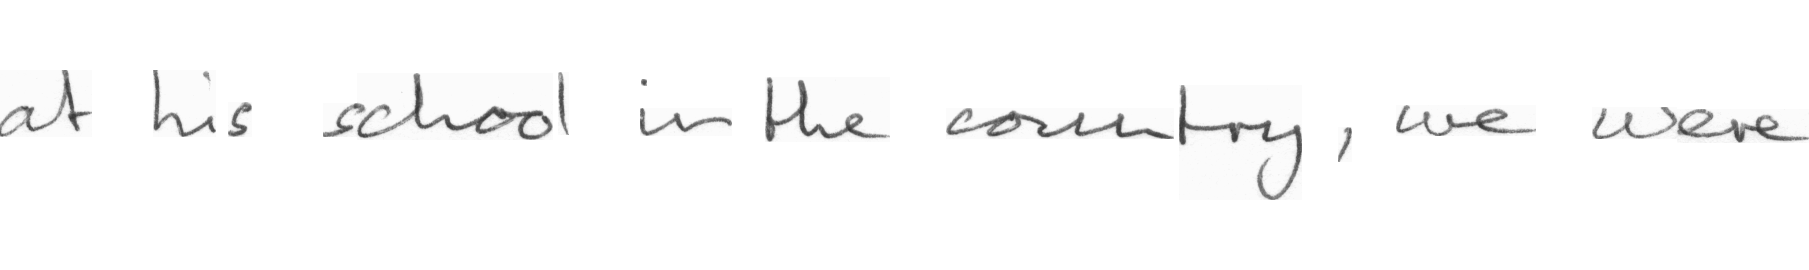 at his school in the country, we were